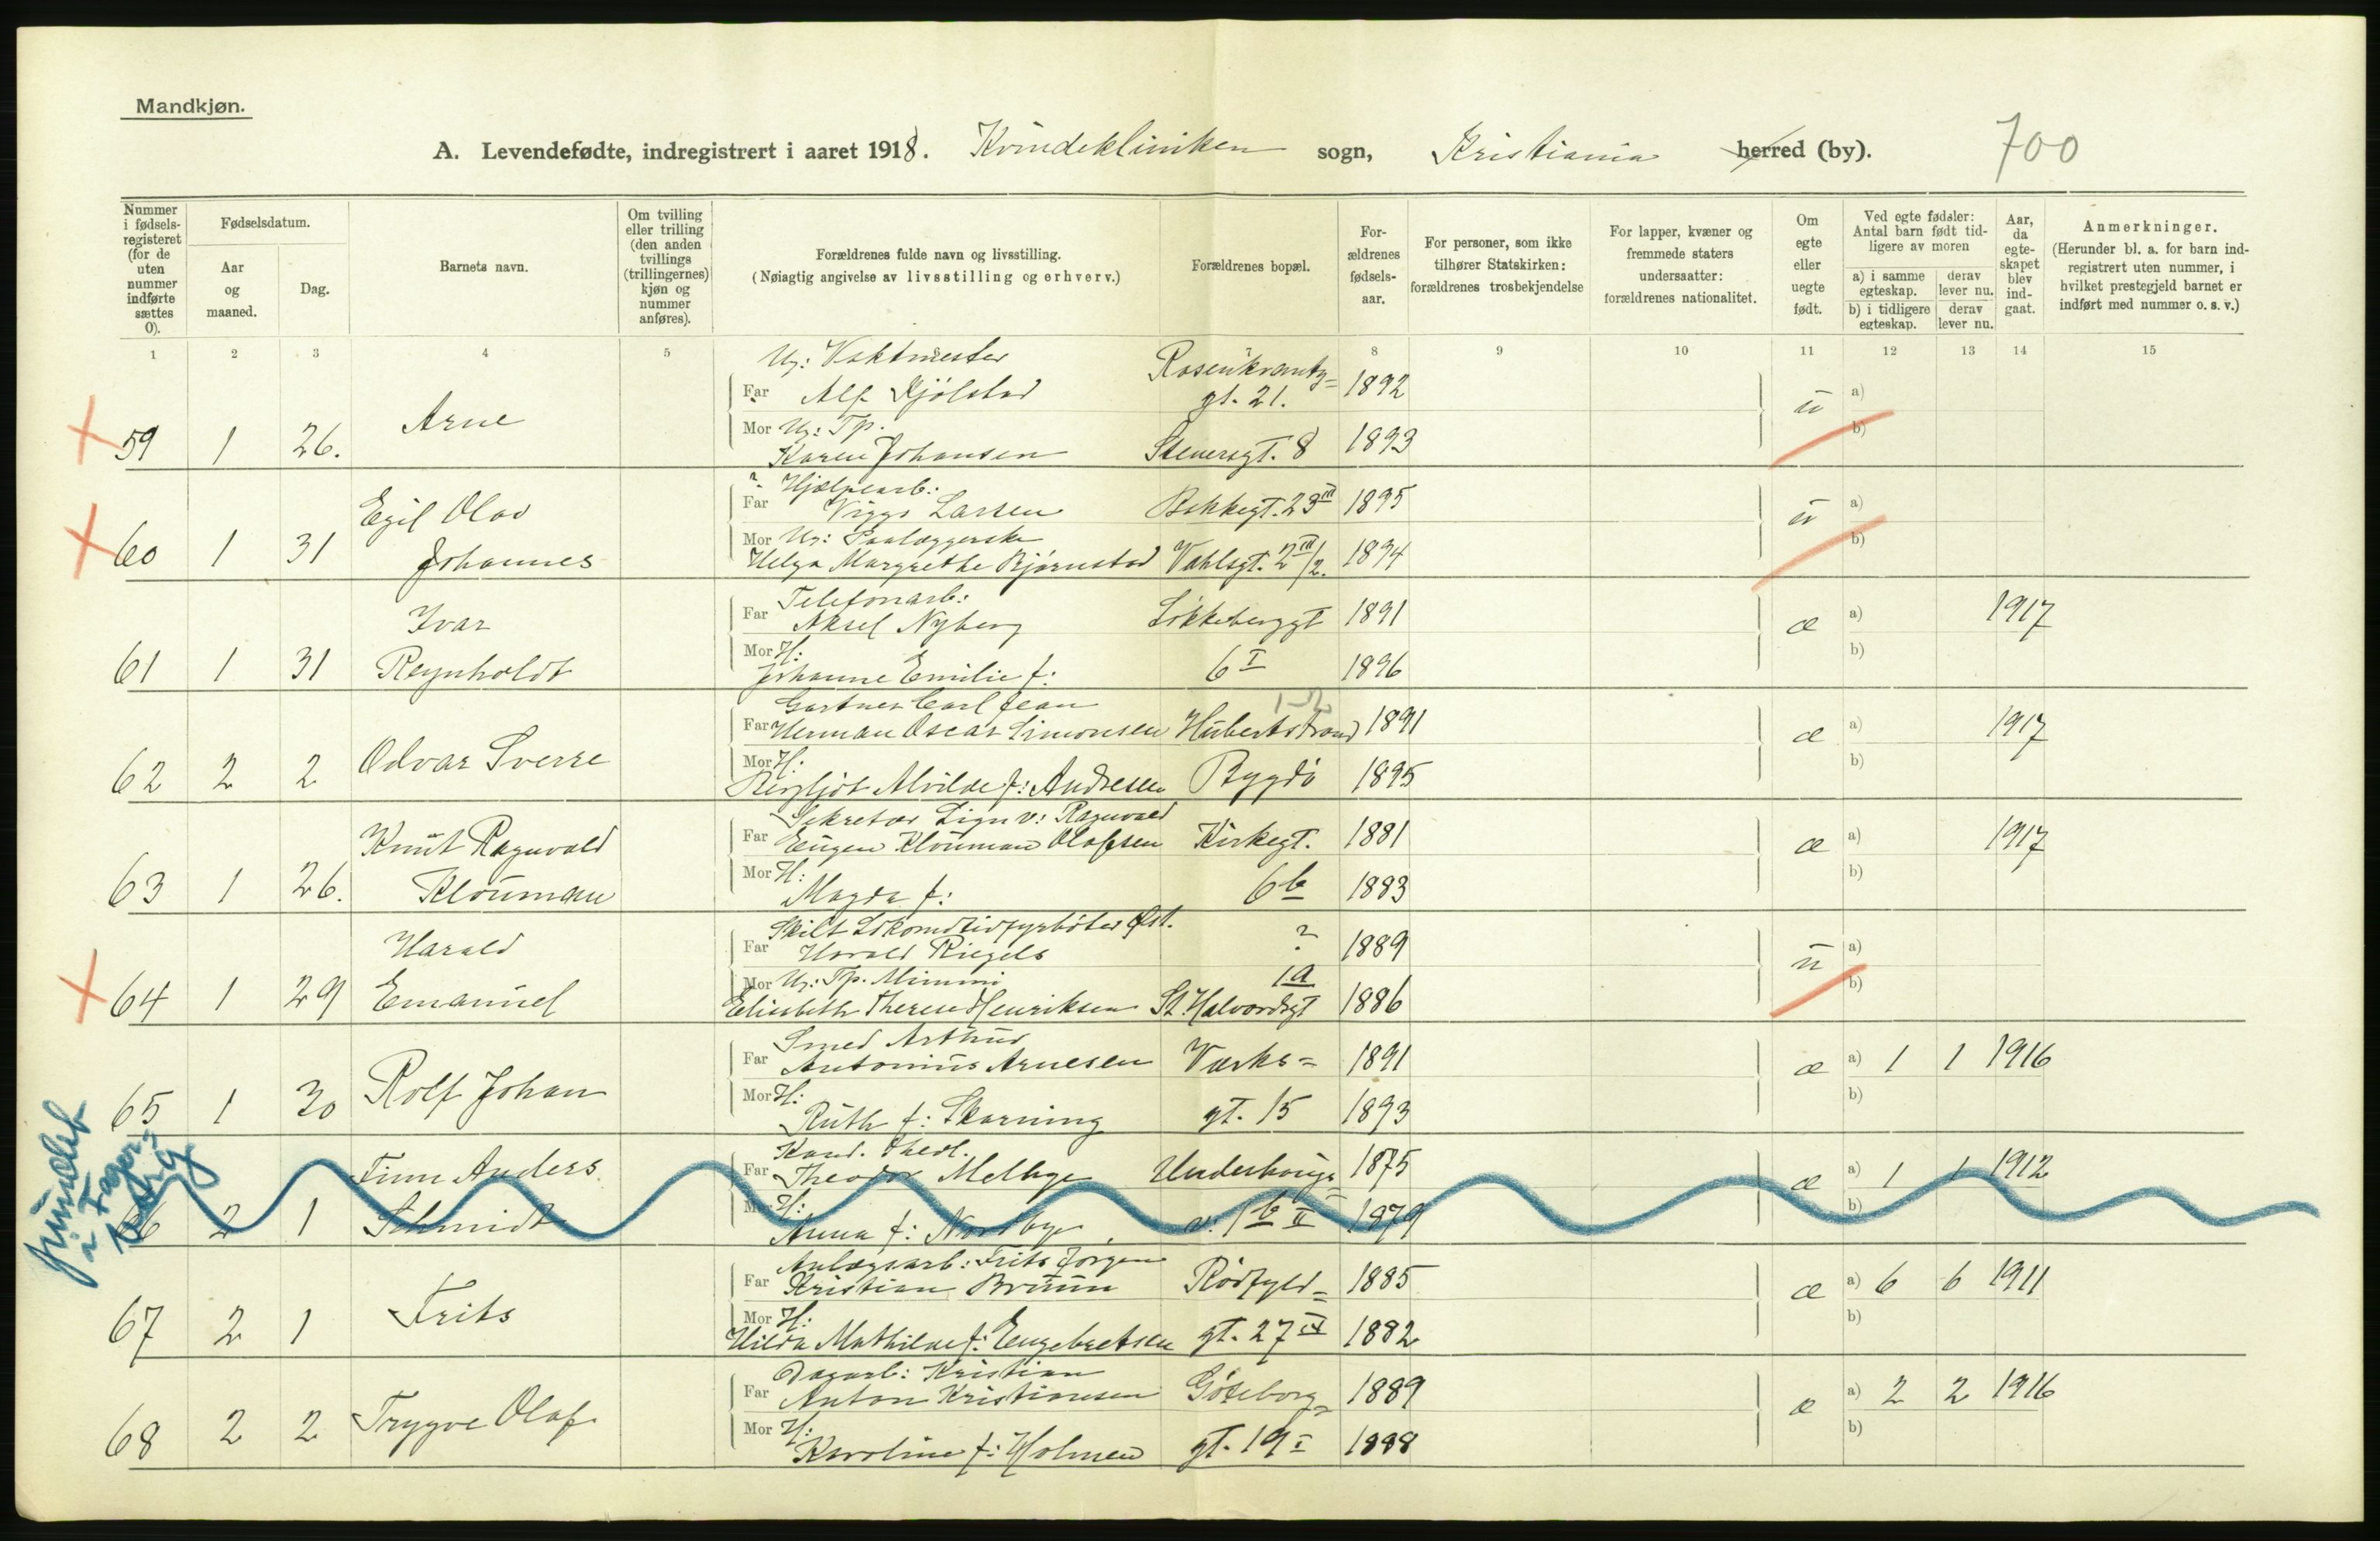 Mandkjøn.
A. Levendefødte, indregistrert i aaret 1918. Kvindekliniken sogn, Kristiania herred (by). 700
Nummer i fødsels-registeret (for de uten nummer indførte sættes 0).
Fødselsdatum.
Aar og maaned.
Dag.
Barnets navn.
Om tvilling eller trilling (den anden tvillings (trillingernes) kjøn og nummer anføres).
Forældrenes fulde navn og livsstilling.
(Nøiagtig angivelse av livsstilling og erhverv.)
Forældrenes bopæl.
For-ældrenes fødsels-aar.
For personer, som ikke tilhører Statskirken: forældrenes trosbekjendelse
For lapper, kvæner og fremmede staters undersaatter: forældrenes nationalitet.
Om egte eller uegte født.
Ved egte fødsler: Antal barn født tid-ligere av moren
a) i samme egteskap.
derav lever nu.
b) i tidligere egteskap.
derav lever nu.
Aar, da egte-skapet blev ind-gaat.
Anmerkninger.
(Herunder bl. a. for barn ind-registrert uten nummer, i hvilket prestegjeld barnet er indført med nummer o. s. v.)
1 2 3 4 5 7 8 9 10 11 12 13 14 15
Ug: Vaktmester Rosenkrantz=
Far Alf Kjölstad gt. 21. 1892 a)
Arne ü
Mor Ug: Tp. b)
59 1 26. Karen Johansen Stenersgt. 8 1893
Hjælpearb:
Egil Olav Far Viggo Larsen Bakkegt. 23 III 1895 ü a)
Mor Ug: Paalæggerske b)
60 1 31 Johannes Helga Margrethe Bjørnstad Vahlsgt. 2 III/2. 1894
Telefonarb:
Ivar Far Aksel Nyberg Løkkeberggt 1891 æ a) 1917
Mor H: b)
61 1 31 Reynholdt Johanne Emilie f: 6 I 1896
Gartner Carl Jean
Far Herman Oscar Simonsen Hubertstrand 1891 æ a) 1917
Odvar Sverre Mor H: b)
62 2 2 Bergljot Alvilde f: Andresen Bygdö 1895
Sekretær Ragnvald
Knut Ragnvald Far Eugen Klouman Olafsen Kirkegt. 1881 æ a) 1917
Mor H: b)
63 1 26. Klouman Magda f: 6 b 1883
Skilt Lokomotivfyrbøter
Harald Far Harald Riegels ? 1889 ü a)
Mor Ug: Tp. Mimmi 1a b)
64 1 29 Emanuel Elisabeth Therese Henriksen St. Halvardsgt 1886
Smed Arthur
Far Antonius Arnesen Værks= 1891 æ a) 1 1 1916
Rolf Johan Mor H: b)
65 1 30 Ruth f: Skarning gt. 15 1893
Kand. Theol.
Finn Anders Far Theodor Melbye 1875 æ a) 1 1 1912
Mor H: b)
66 2 1 Schmidt Anna f: Nordbye 1 b II 1879
Anlægsarb: Frits Jørgen
Far Kristian Bruun Rødfyld= 1885 æ a) 6 6 1911
Frits Mor H: b)
67 2 1 Hilda Mathilde f: Engebretsen gt. 27 IV 1882
Dagarb: Kristian
Far Anton Kristiansen Göteborg= 1889 æ a) 2 2 1916
Trygve Olaf Mor H: b)
68 2 2 Karoline f: Holmen gt. 19 I 1888